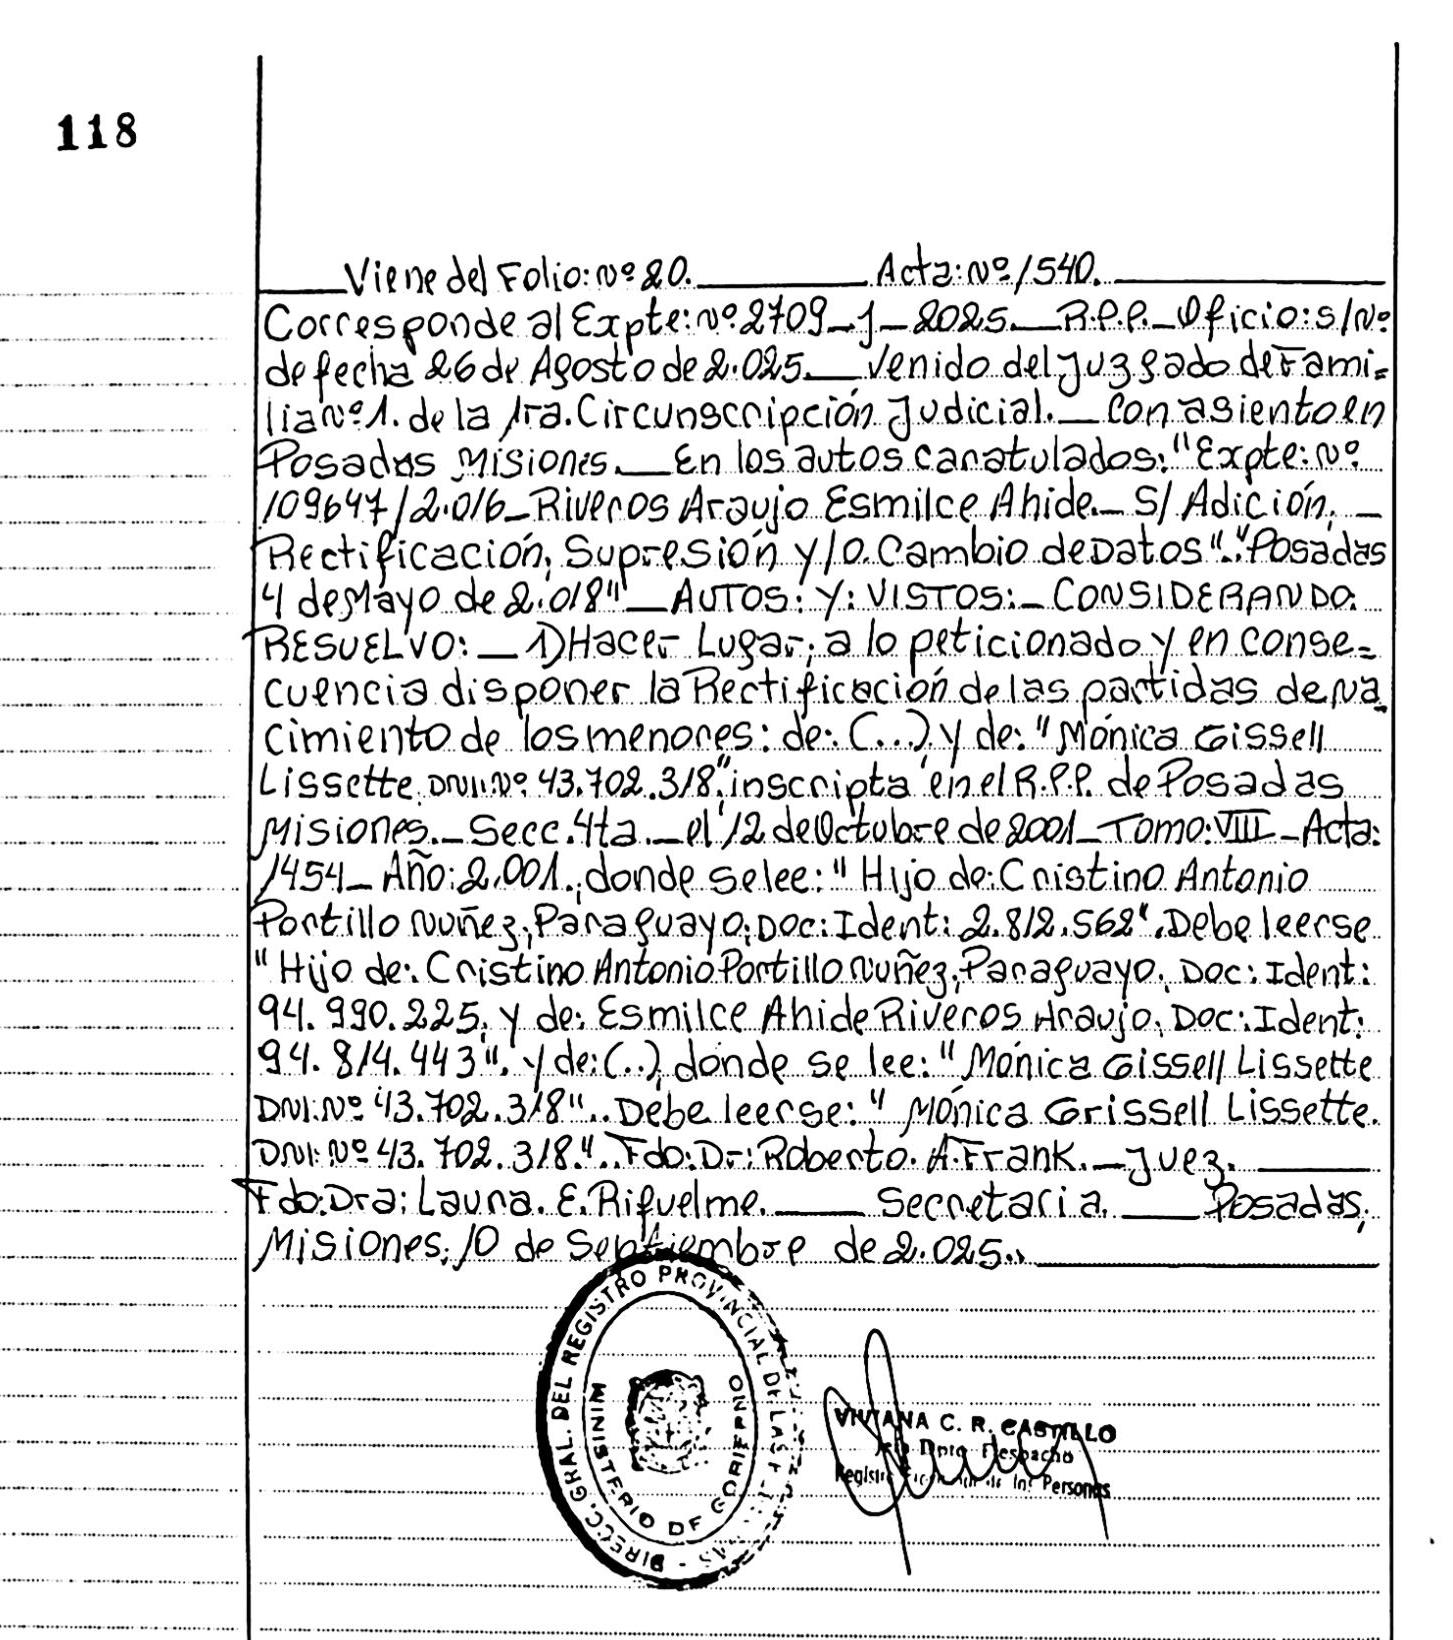 118
Viene del Folio: Nº 20. Acta: Nº 1540.
Corresponde al Expte: Nº 2709_J_2025._ R.P.P._Oficio: s/Nº
de fecha 26 de Agosto de 2.025._ Venido del Juzgado de Fami=
lia Nº 1. de la 1ra. Circunscripción Judicial._ Con asiento en
Posadas Misiones._ En los autos caratulados: "Expte: Nº
109647/2.016_Riveros Araujo Esmilce Ahide._ S/ Adición, _
Rectificación, Supresión y/o Cambio de Datos"."Posadas
4 de Mayo de 2.018"_AUTOS: Y: VISTOS:_ CONSIDERANDO:
RESUELVO:_ 1) Hacer Lugar, a lo peticionado y en conse=
cuencia disponer la Rectificación de las partidas de Na_
cimiento de los menores: de: (...) y de: "Mónica Gissell
Lissette DNI: Nº 43.702.318", inscripta en el R.P.P. de Posadas
Misiones._ Secc. 4ta._ el 12 de Octubre de 2001_ Tomo: VIII_ Acta:
1454_ Año: 2.001., donde se lee: "Hijo de: Cristino Antonio
Portillo Nuñez, Paraguayo, Doc: Ident: 2.812.562". Debe leerse
"Hijo de: Cristino Antonio Portillo Nuñez, Paraguayo, Doc: Ident:
94.990.225, y de: Esmilce Ahide Riveros Araujo, Doc: Ident:
94.814.443". y de: (..), donde se lee: "Mónica Gissell Lissette
DNI: Nº 43.702.318".. Debe leerse: "Mónica Grissell Lissette.
DNI: Nº 43.702.318.".. Fdo: Dr: Roberto. A. Frank._ Juez.
Fdo: Dra: Laura. E. Riquelme. Secretaria. Posadas,
Misiones, 10 de Septiembre de 2.025..
DIRECC. GRAL. DEL REGISTRO PROVINCIAL DE LAS
MINISTERIO DE GOBIERNO
VIVIANA C. R. CASTILLO
Dpto Despacho
Personas